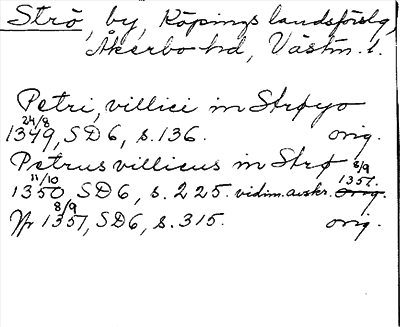 Strö, by, Köpings landsförslg,
Åkerbo hd, Västm. l.
Petri, villici in Strøyo
24/8
1349, SD6, s. 136. orig.
Petrus villicus in Strø 8/9
11/10 1351.
1350 SD6, s. 225. vidim. avskr. orig.
8/9
1351, SD6, s. 315. orig.